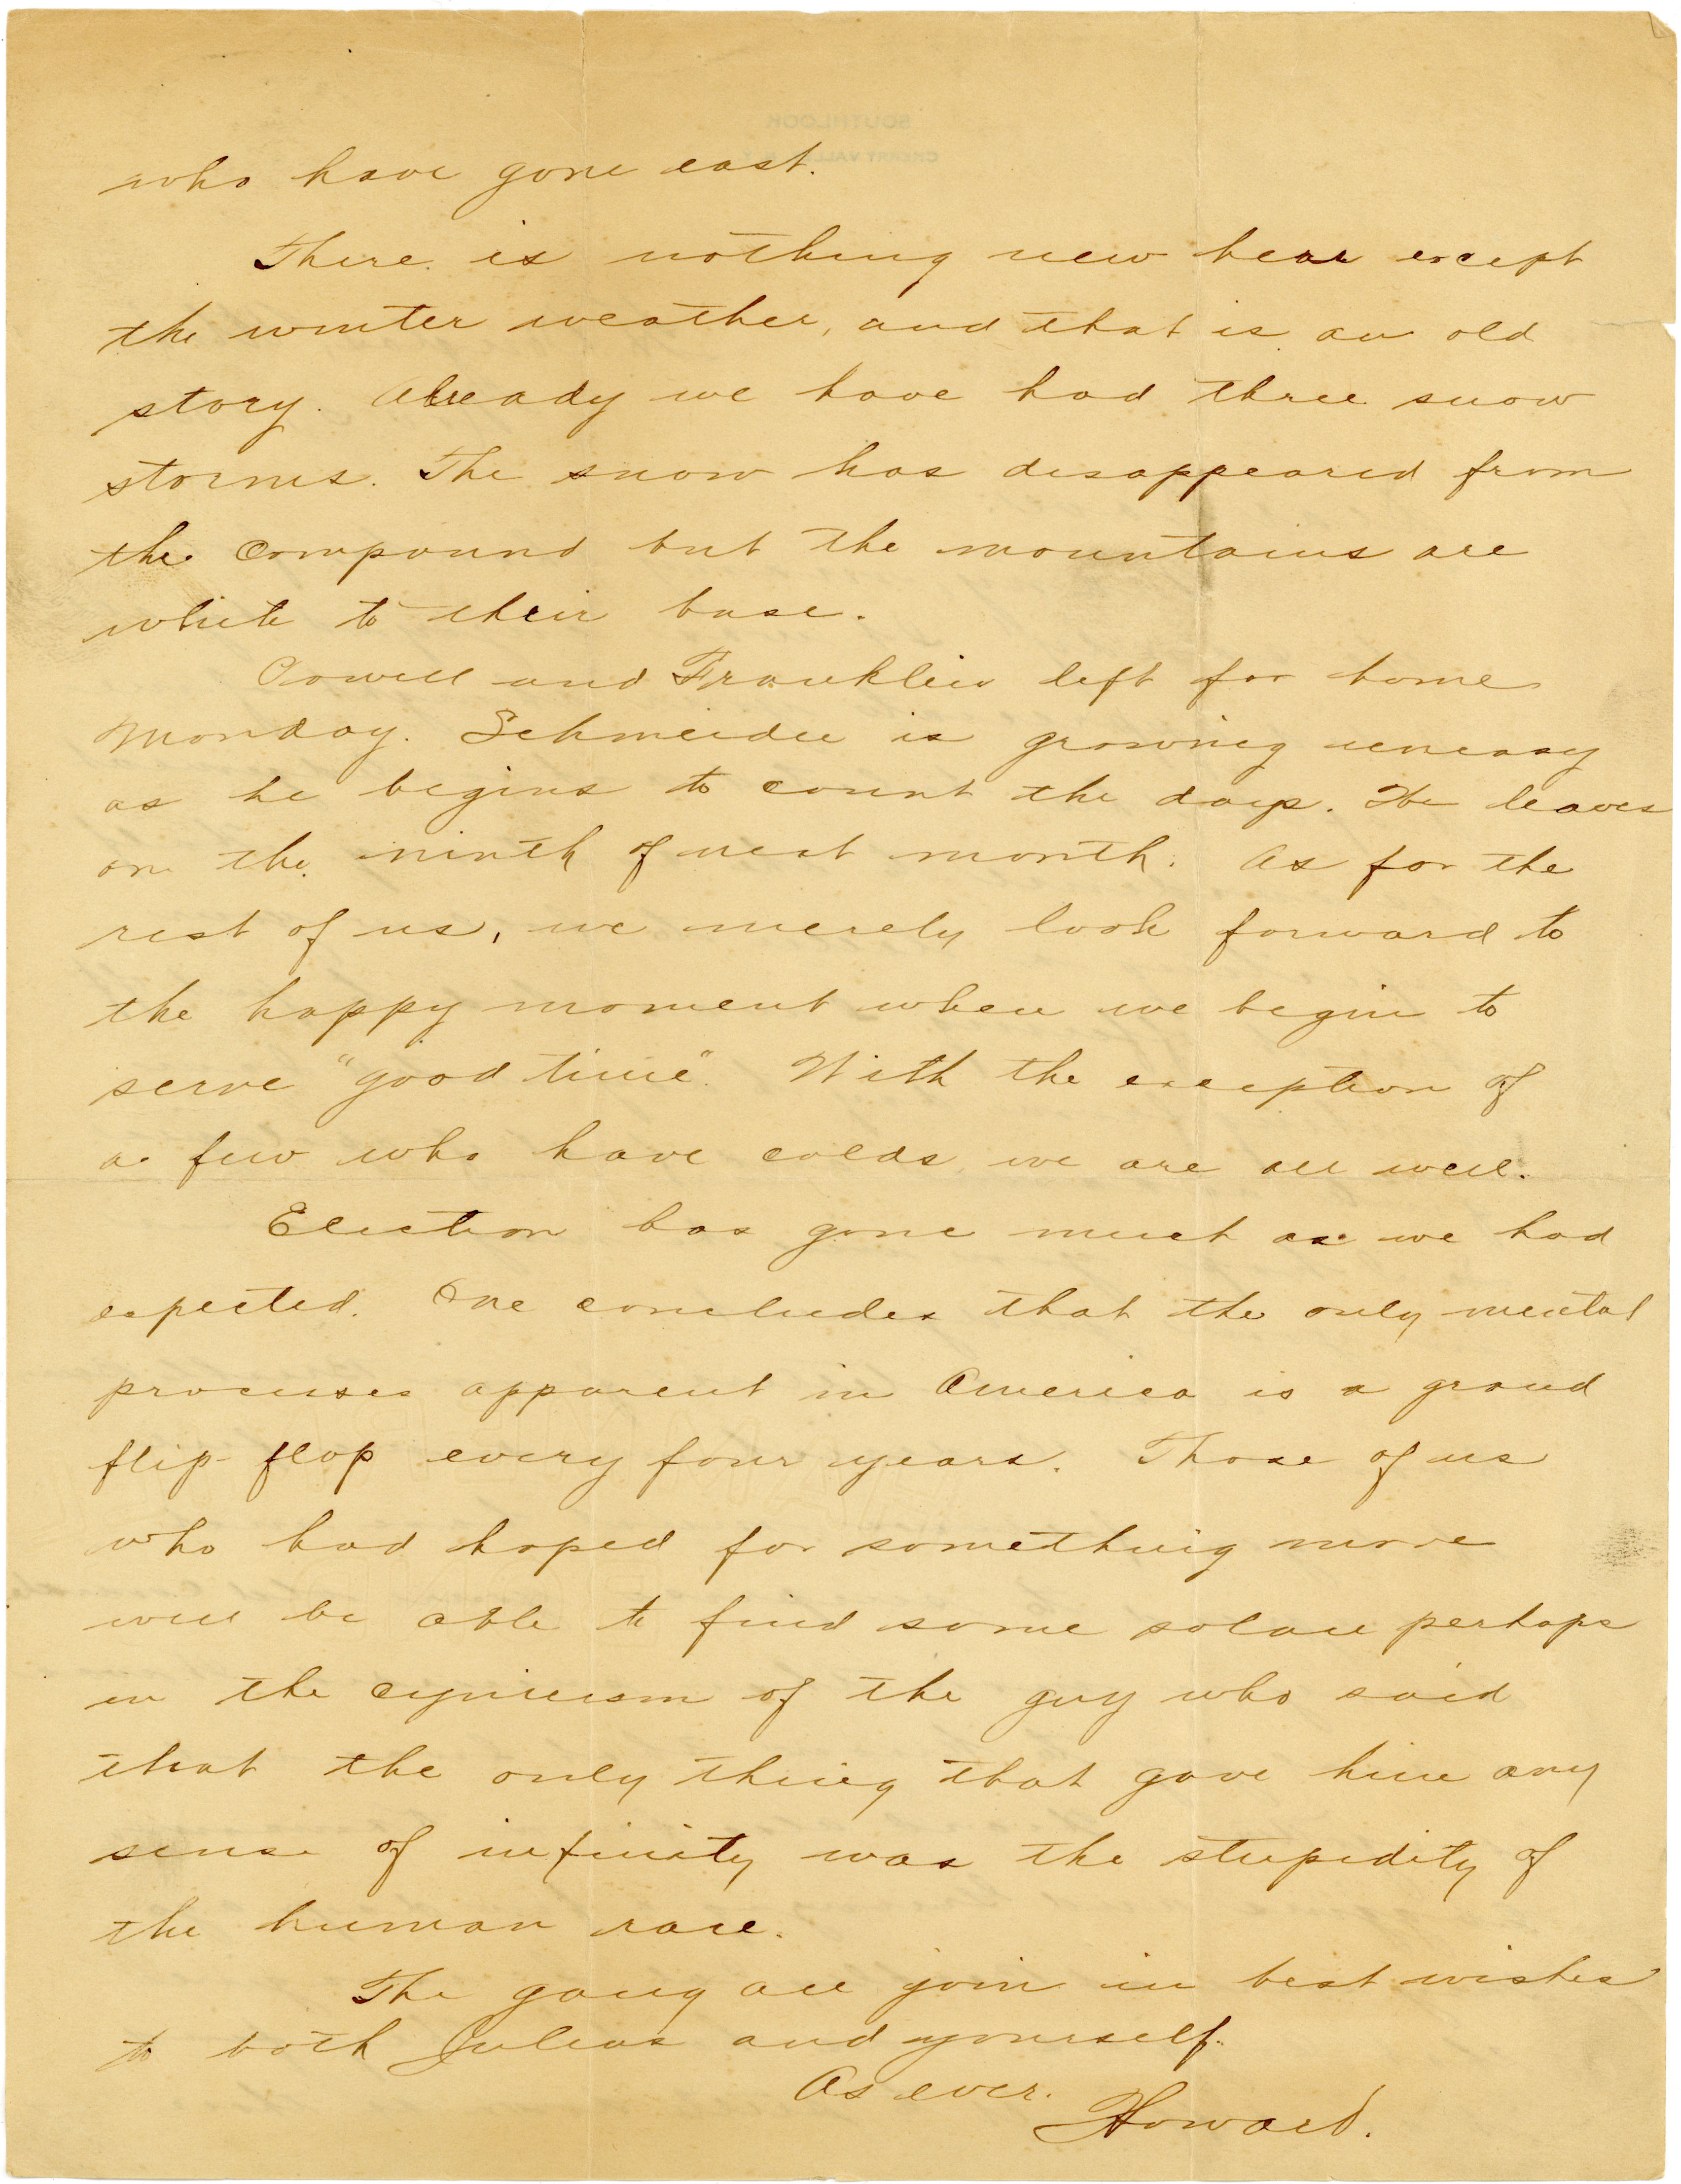 SOUTHLOOK
CHERRY VALLEY
who have gone east.
There is nothing new hear except
the winter weather, and that is an old
story. Already we have had three snow
storms. The snow has disappeared from
the compound but the mountains are
white to their base.
Cowell and Franklin left for home
Monday. Schmeider is growing uneasy
as he begins to count the days. He leaves
on the ninth of next month. As for the
rest of us, we merely look forward to
the happy moment when we begin to
serve "good time". With the exception of
a few who have colds we are all well.
Election has gone much as we had
expected. One concludes that the only mental
processes apparent in America is a grand
flip-flop every four years. Those of us
who had hoped for something more
will be able to find some solace perhaps
in the cynicism of the guy who said
that the only thing that gave him any
sense of infinity was the stupidity of
the human race.
The gang all join in best wishes
to both Julius and yourself.
As ever.
Howard.